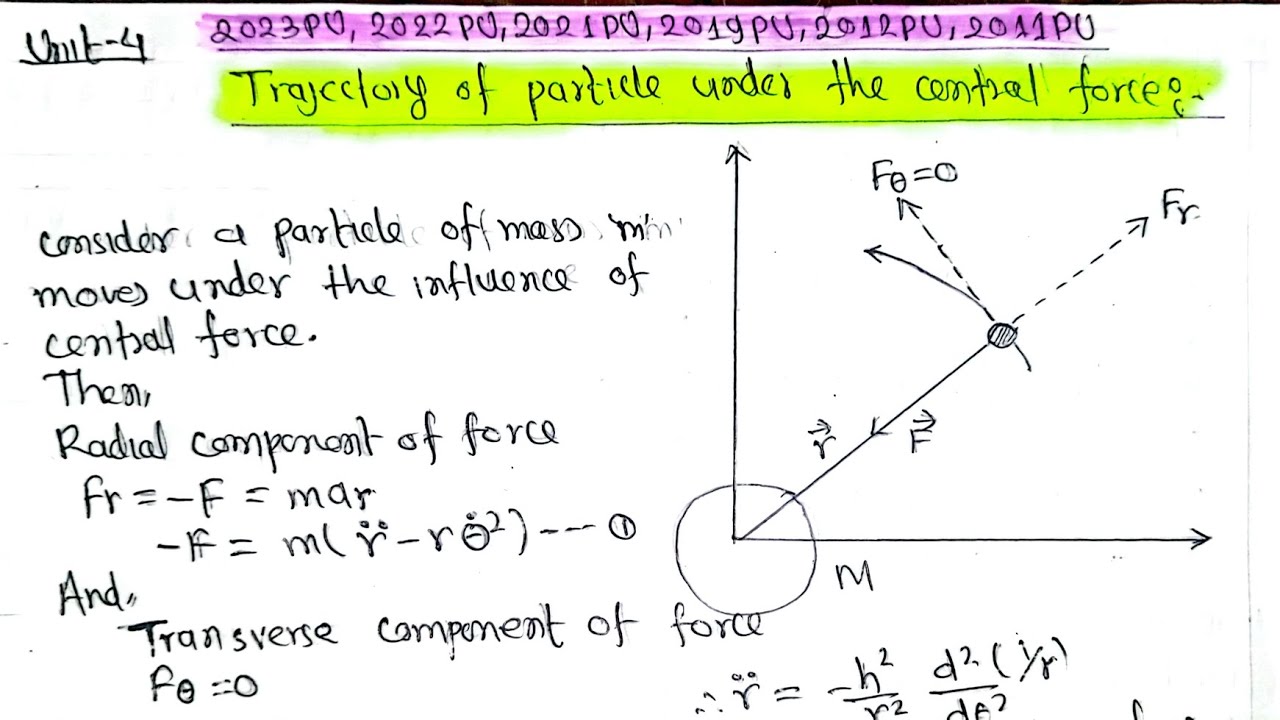 Unit-4
2023PU, 2022PU, 2021PU, 2019PU, 2012PU, 2011PU
Trajectory of particle under the central force:-
consider a particle of mass 'm'
moves under the influence of
central force.
Then,
Radial component of force
Fr = -F = mar
-F = m(r̈ - rθ̇²) --- ①
And,
Transverse component of force
Fθ = 0
Fθ=0
Fr
r⃗
F⃗
M
∴ r̈ = -h²/r² d²(1/r)/dθ²